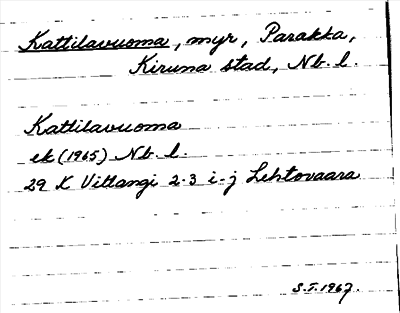 Kattilavuoma, myr, Parakka,
Kiruna stad, Nb. l.
Kattilavuoma
ek (1965) Nb. l.
29 K Vittangi 2-3 i-j Lehtovaara
S.F. 1967.